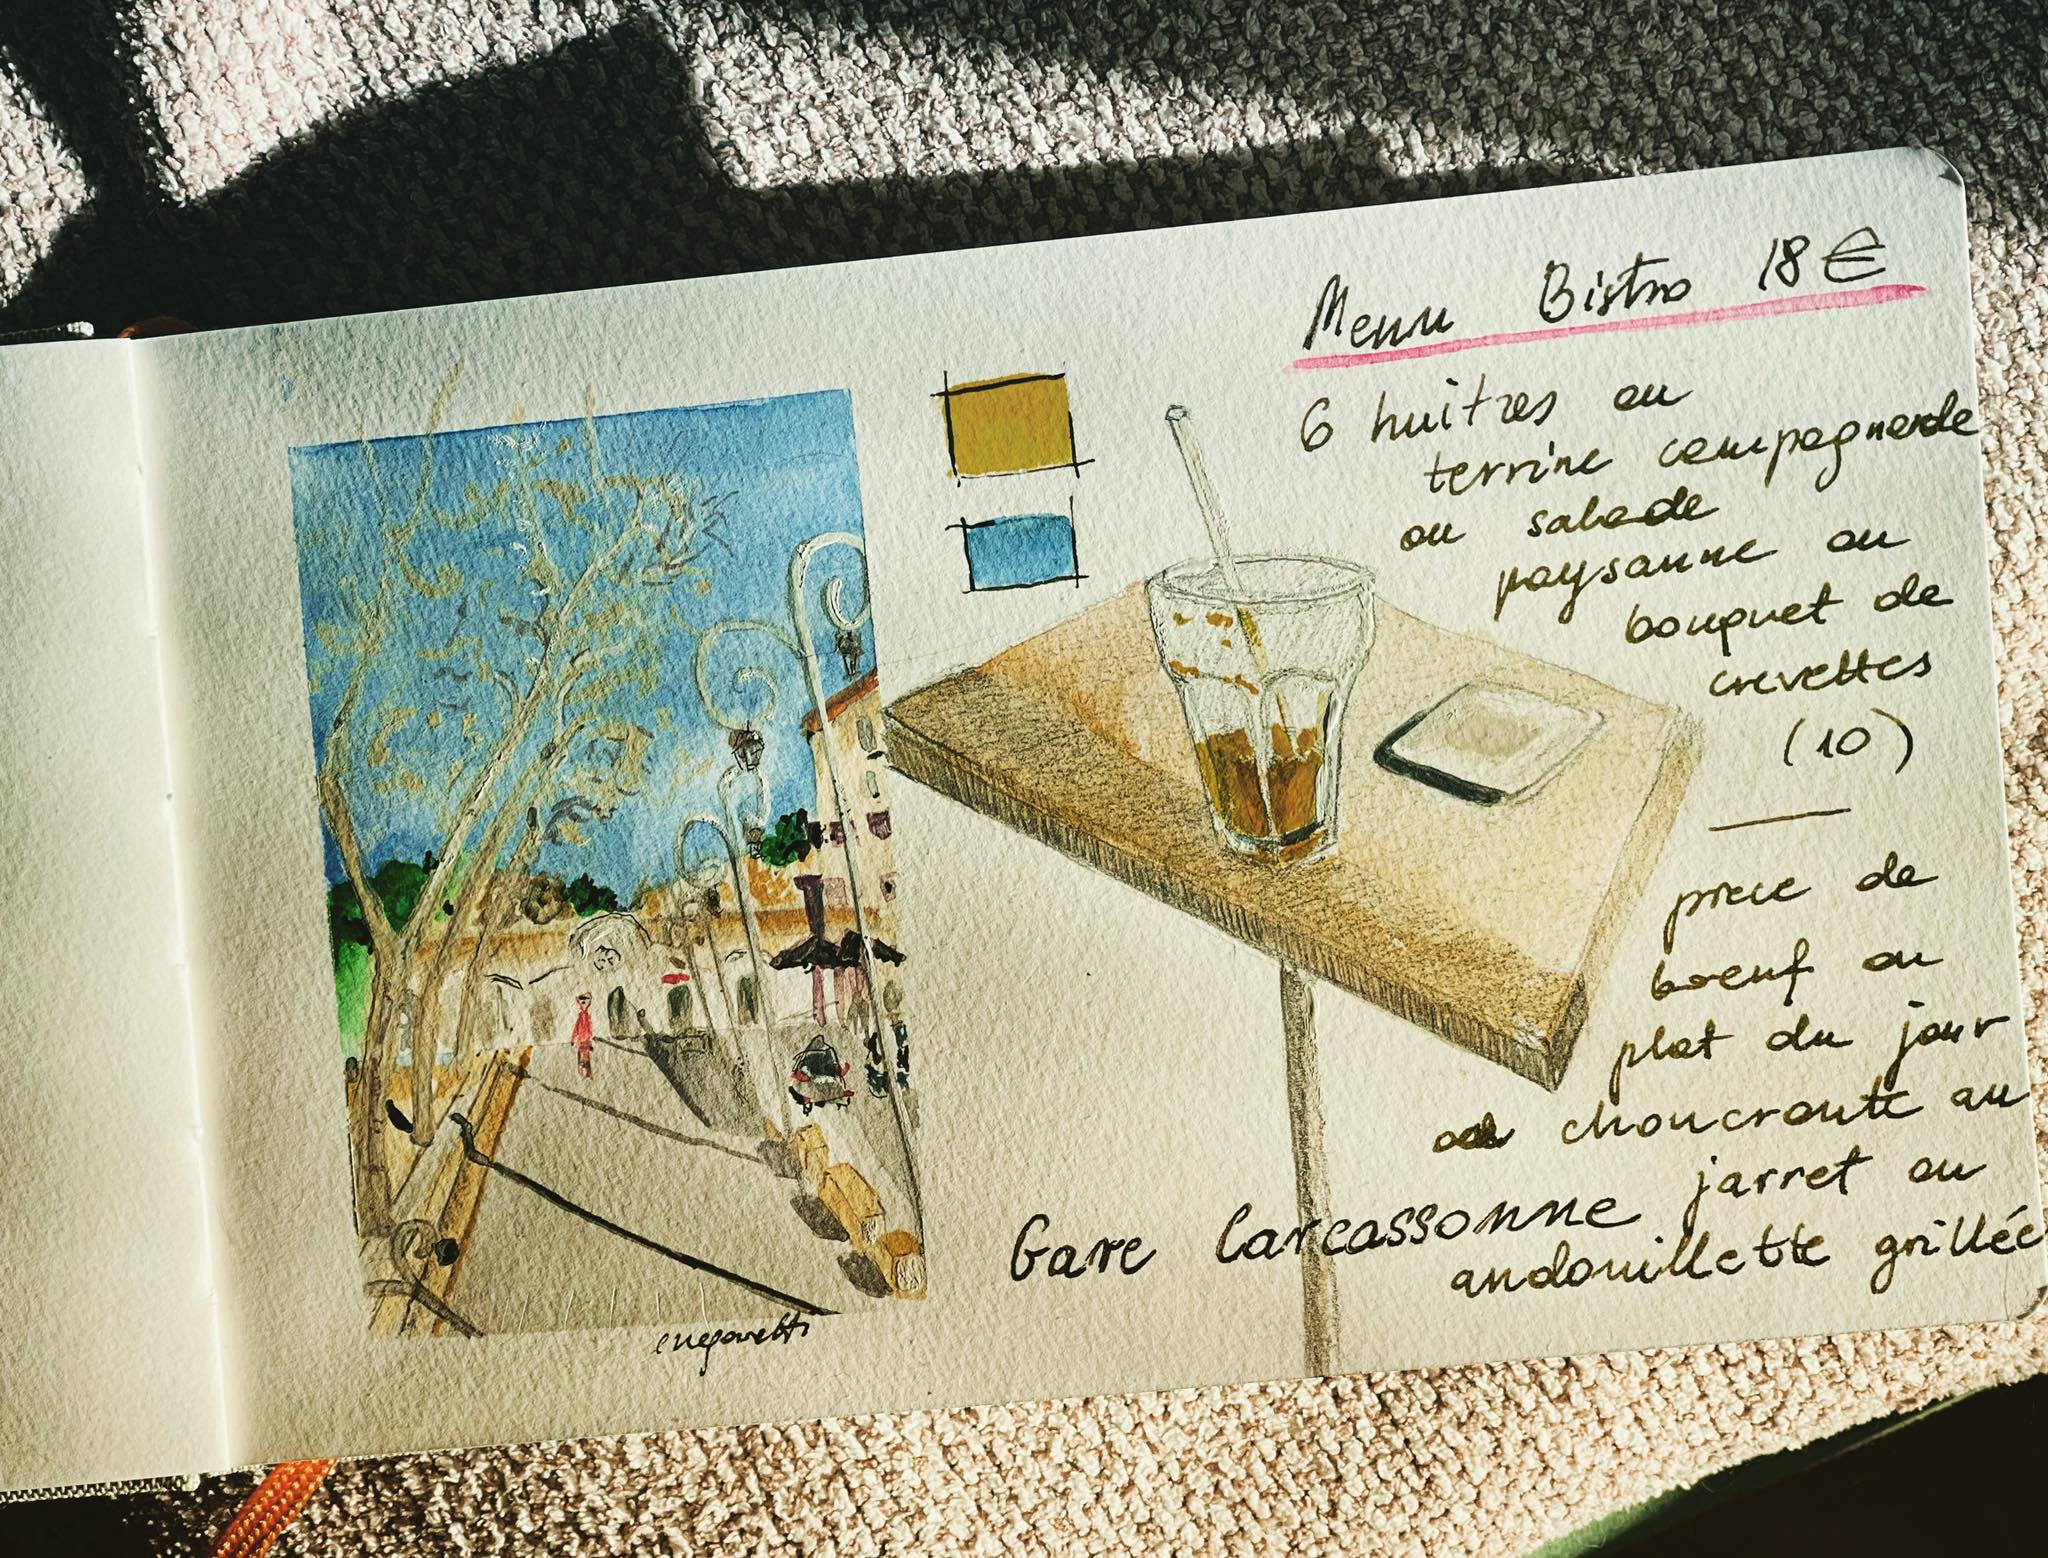 Menu Bistro 18€
6 huitres ou
terrine compagnarde
ou salade
paysanne ou
bouquet de
crevettes
(10)
piece de
boeuf ou
plat du jour
choucroute au
jarret ou
andouillette grillée
Gare Carcassonne